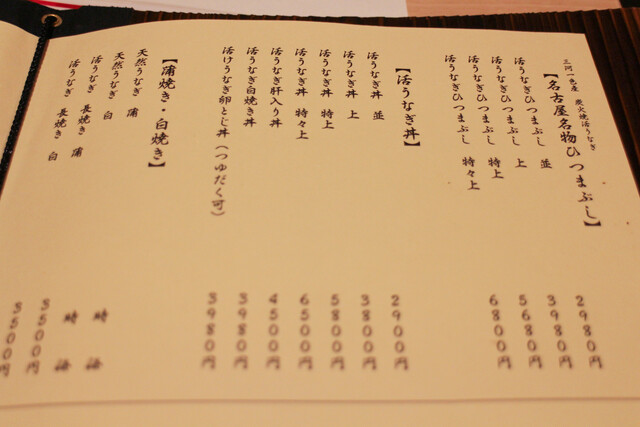 三河一色産 炭火焼活うなぎ
【名古屋名物ひつまぶし】
活うなぎひつまぶし 並 2980円
活うなぎひつまぶし 上 3980円
活うなぎひつまぶし 特上 5680円
活うなぎひつまぶし 特々上 6800円
【活うなぎ丼】
活うなぎ丼 並 2900円
活うなぎ丼 上 3800円
活うなぎ丼 特上 5800円
活うなぎ丼 特々上 6500円
活うなぎ肝入り丼 4500円
活うなぎ白焼き丼 3980円
活けうなぎ卵とじ丼(つゆだく可) 3980円
【蒲焼き・白焼き】
天然うなぎ 蒲 時価
天然うなぎ 白 時価
活うなぎ 長焼き 蒲 3500円
活うなぎ 長焼き 白 3500円